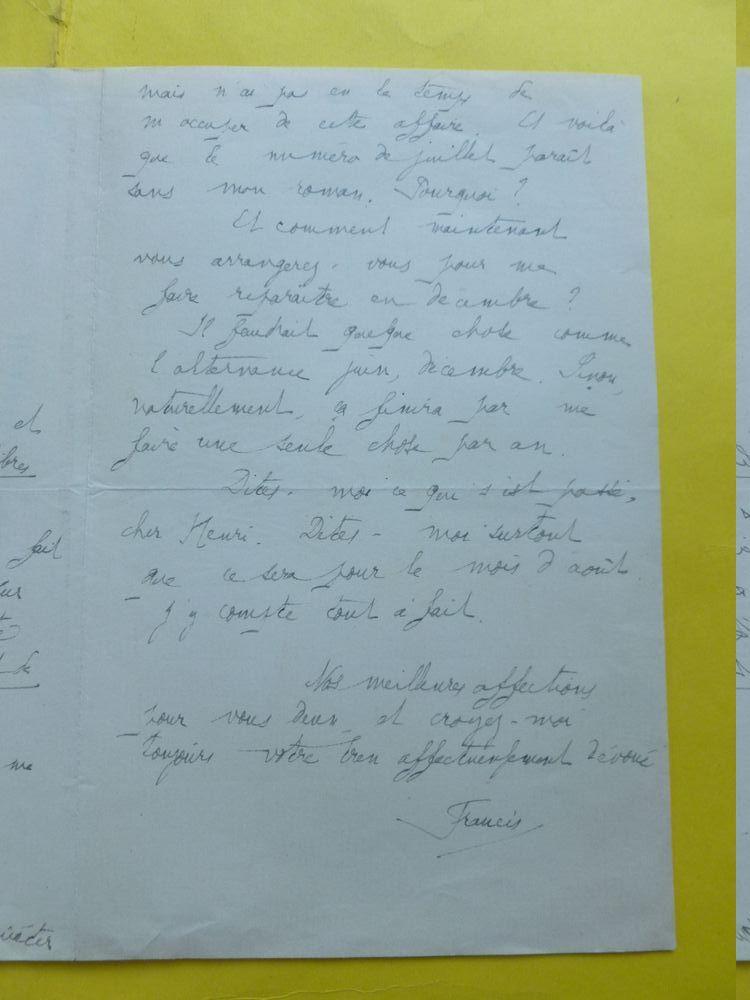 mais n'ai pas eu le temps de
m'occuper de cette affaire. Et voilà
que le numéro de juillet paraît
sans mon roman. Pourquoi ?
Et comment maintenant
vous arrangerez-vous pour me
faire reparaître en décembre ?
Il faudrait quelque chose comme
l'alternance juin, décembre. Sinon,
naturellement, ça finira par me
faire une seule chose par an.
Dites-moi ce qui s'est passé,
cher Henri. Dites-moi surtout
que ce sera pour le mois d'août.
J'y compte tout à fait.
Nos meilleures affections
pour vous deux et croyez-moi
toujours votre bien affectueusement dévoué
Francis
et
fait
de
me